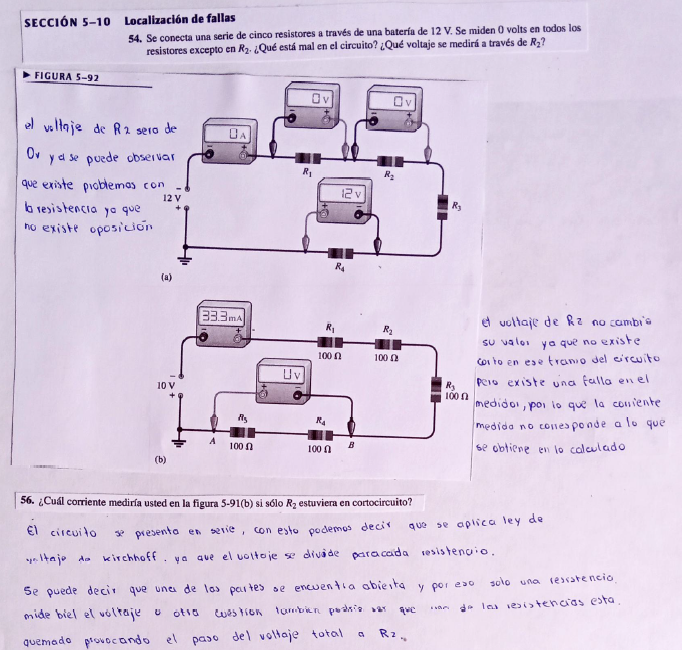 SECCIÓN 5–10 Localización de fallas
54. Se conecta una serie de cinco resistores a través de una batería de 12 V. Se miden 0 volts en todos los
resistores excepto en R2. ¿Qué está mal en el circuito? ¿Qué voltaje se medirá a través de R2?
▶ FIGURA 5–92
el voltaje de R2 sera de
0v y a se puede observar
que existe problemas con
la resistencia ya que
no existe oposición
0 V
0 V
0 A
R1
R2
12 V
12 V
R3
R4
(a)
33.3 mA
R1
R2
100 Ω
100 Ω
0 V
10 V
R3
100 Ω
R5
R4
A
B
100 Ω
100 Ω
(b)
el voltaje de R2 no cambia
su valor ya que no existe
corto en ese tramo del circuito
pero existe una falla en el
medidor, por lo que la corriente
medida no corresponde a lo que
se obtiene en lo calculado
56. ¿Cuál corriente mediría usted en la figura 5-91(b) si sólo R2 estuviera en cortocircuito?
El circuito se presenta en serie, con esto podemos decir que se aplica ley de
voltaje de kirchhoff. ya que el voltaje se divide para cada resistencia.
Se puede decir que una de las partes se encuentra abierta y por eso solo una resistencia
mide el voltaje o otra cuestion tambien podria ser que una de las resistencias esta
quemado provocando el paso del voltaje total a R2.